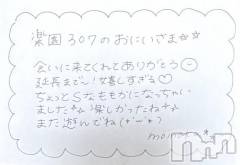 楽園307のおにいさま☆☆
会いに来てくれてありがとう
延長まで!嬉しすぎる♡
ちょっとSなももかになっちゃい
ましたね 楽しかったね
また遊んでね(*ˊᵕˋ*)